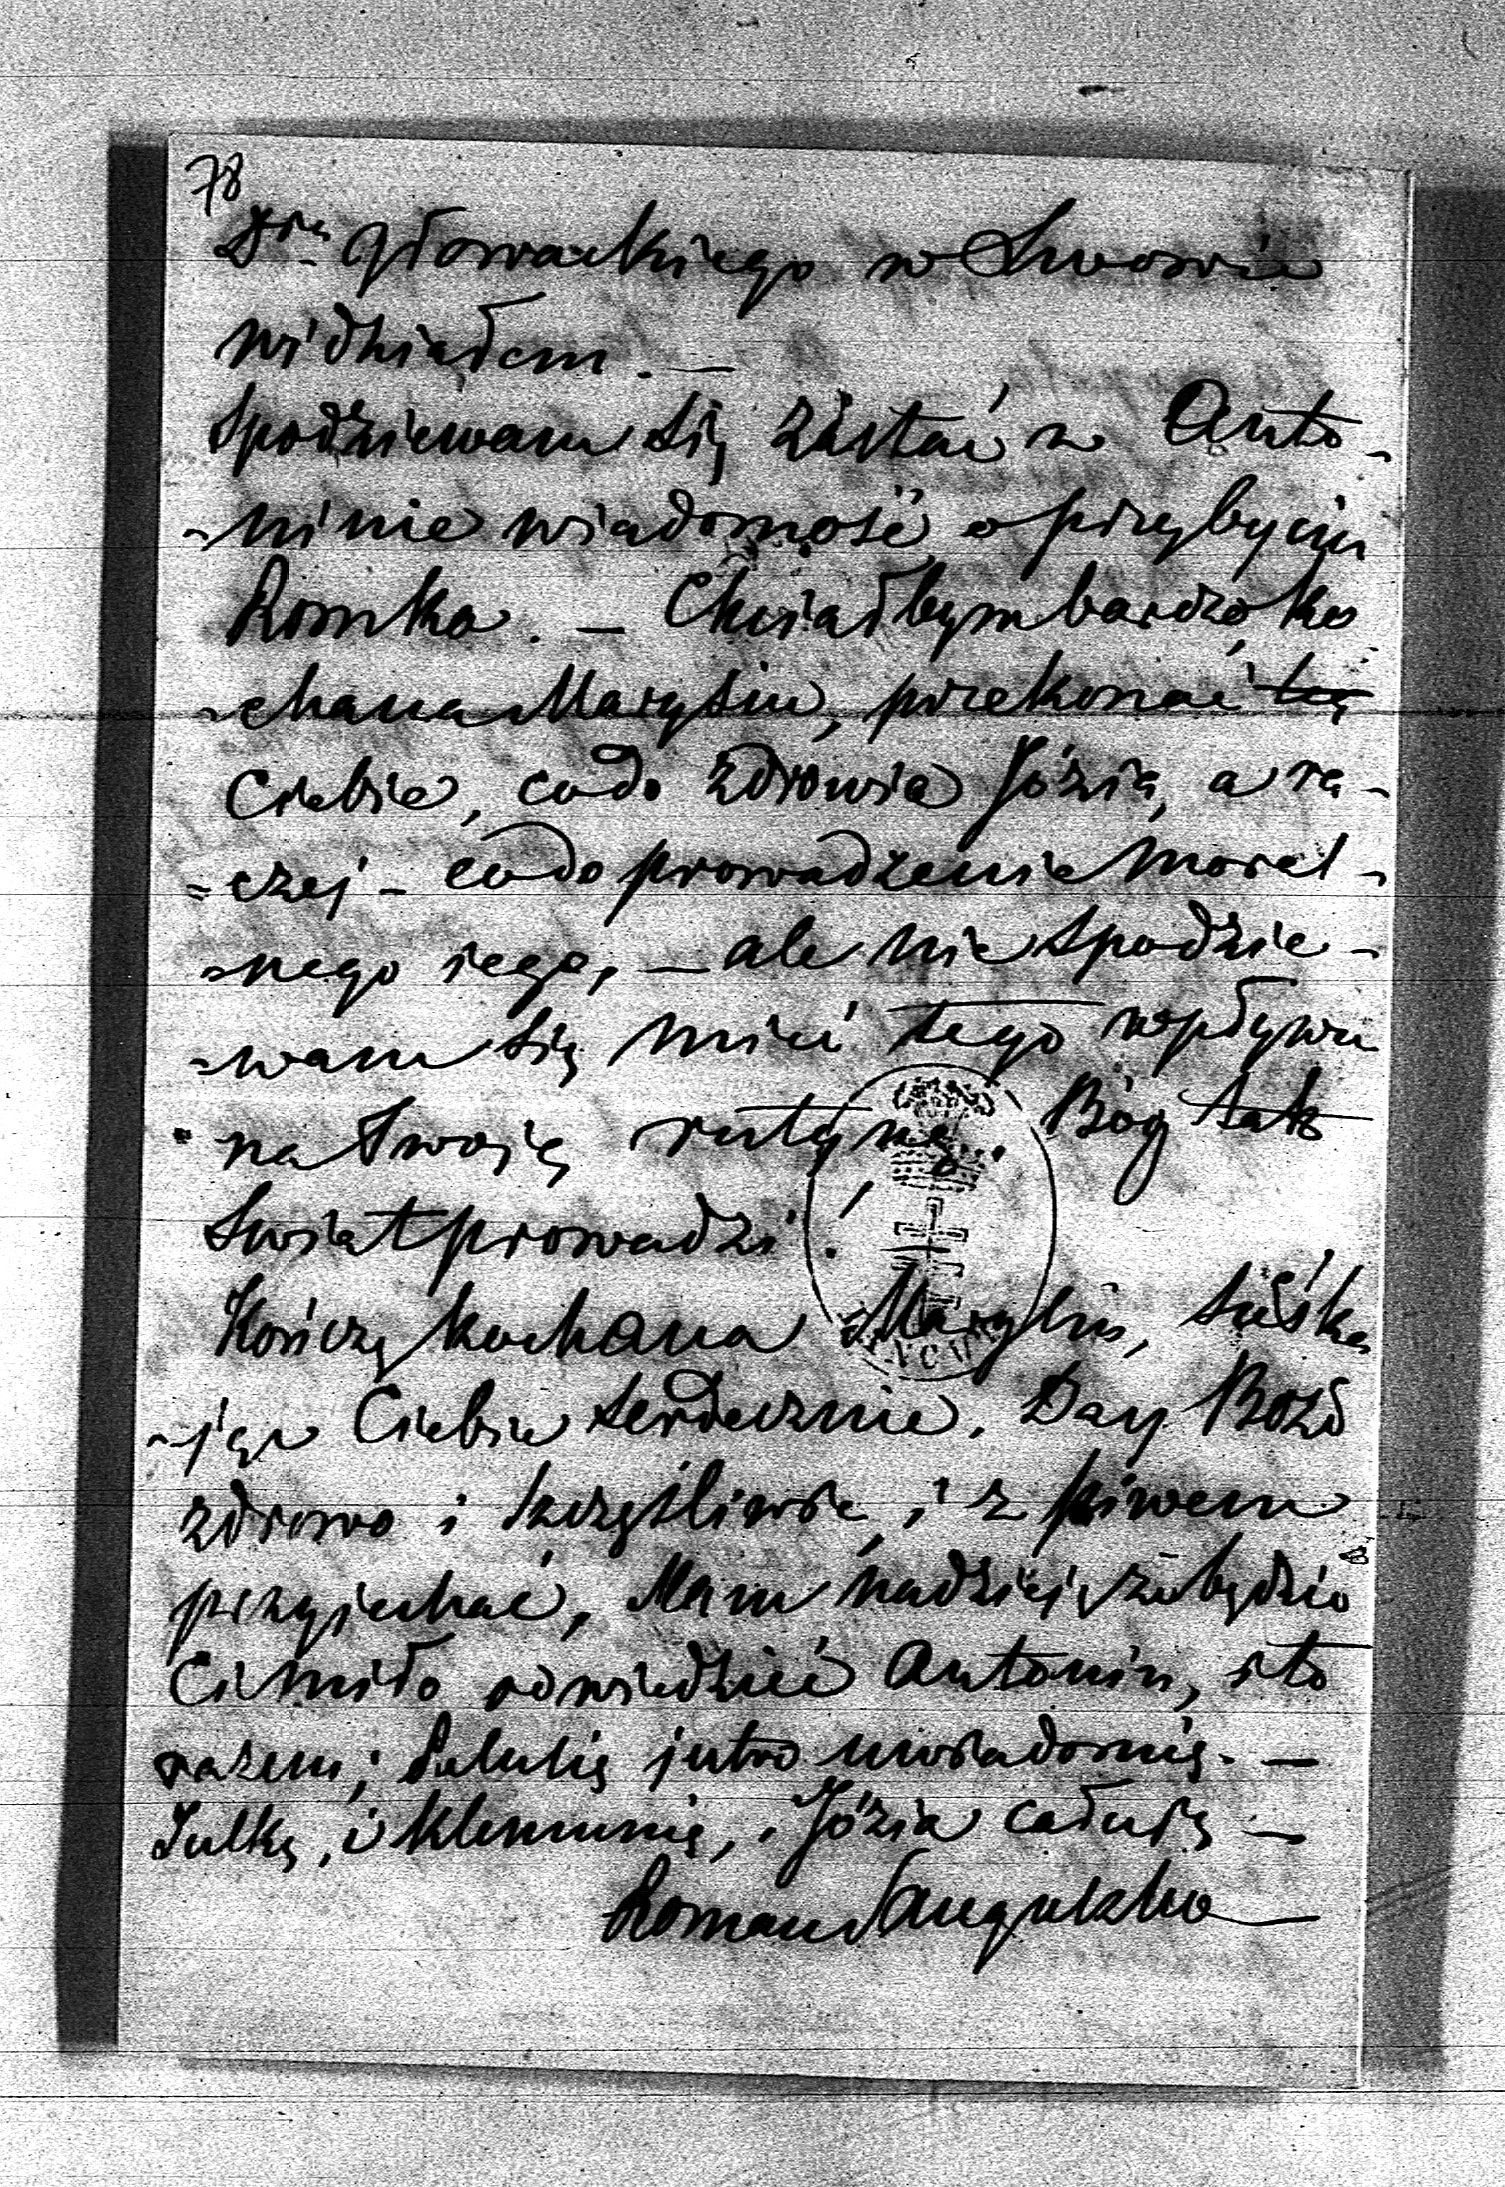 78
Dra Głowackiego w Lwowie
widziałem. —
Spodziewam się zastać w Anto-
-ninie wiadomość o przybyciu
Romka. — Chciałbym bardzo ko
-chana Marysiu, przekonać
Ciebie, codo zdrowia Józia, a ra-
=czej - codo prowadzenia moral-
=nego iego, — ale nie spodzie-
=wam się mieć tego wpływu
na Twoję rutynę. Bóg tak
Świat prowadzi!
Kończę kochana Marysiu, ściska
-jąc Ciebie serdecznie. Day Boże
zdrowo i szczęśliwie, i z piwem
przyjechać, Mam nadzieję że będzie
Ci miło odwiedzić Antonin, i to
razem; jutro uwiadomię. —
Julkę, i Klemunię, i Józia całuję —
Roman Sanguszko